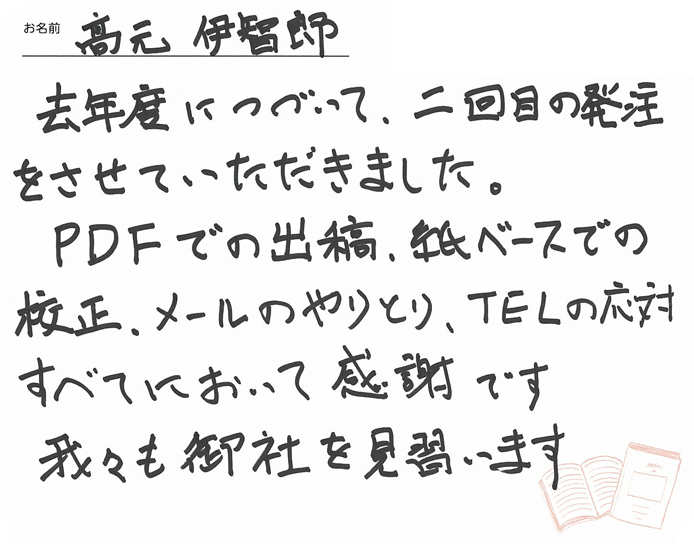 お名前 高元 伊智郎
去年度につづいて、二回目の発注
をさせていただきました。
PDFでの出稿、紙ベースでの
校正、メールのやりとり、TELの応対
すべてにおいて感謝です
我々も御社を見習います